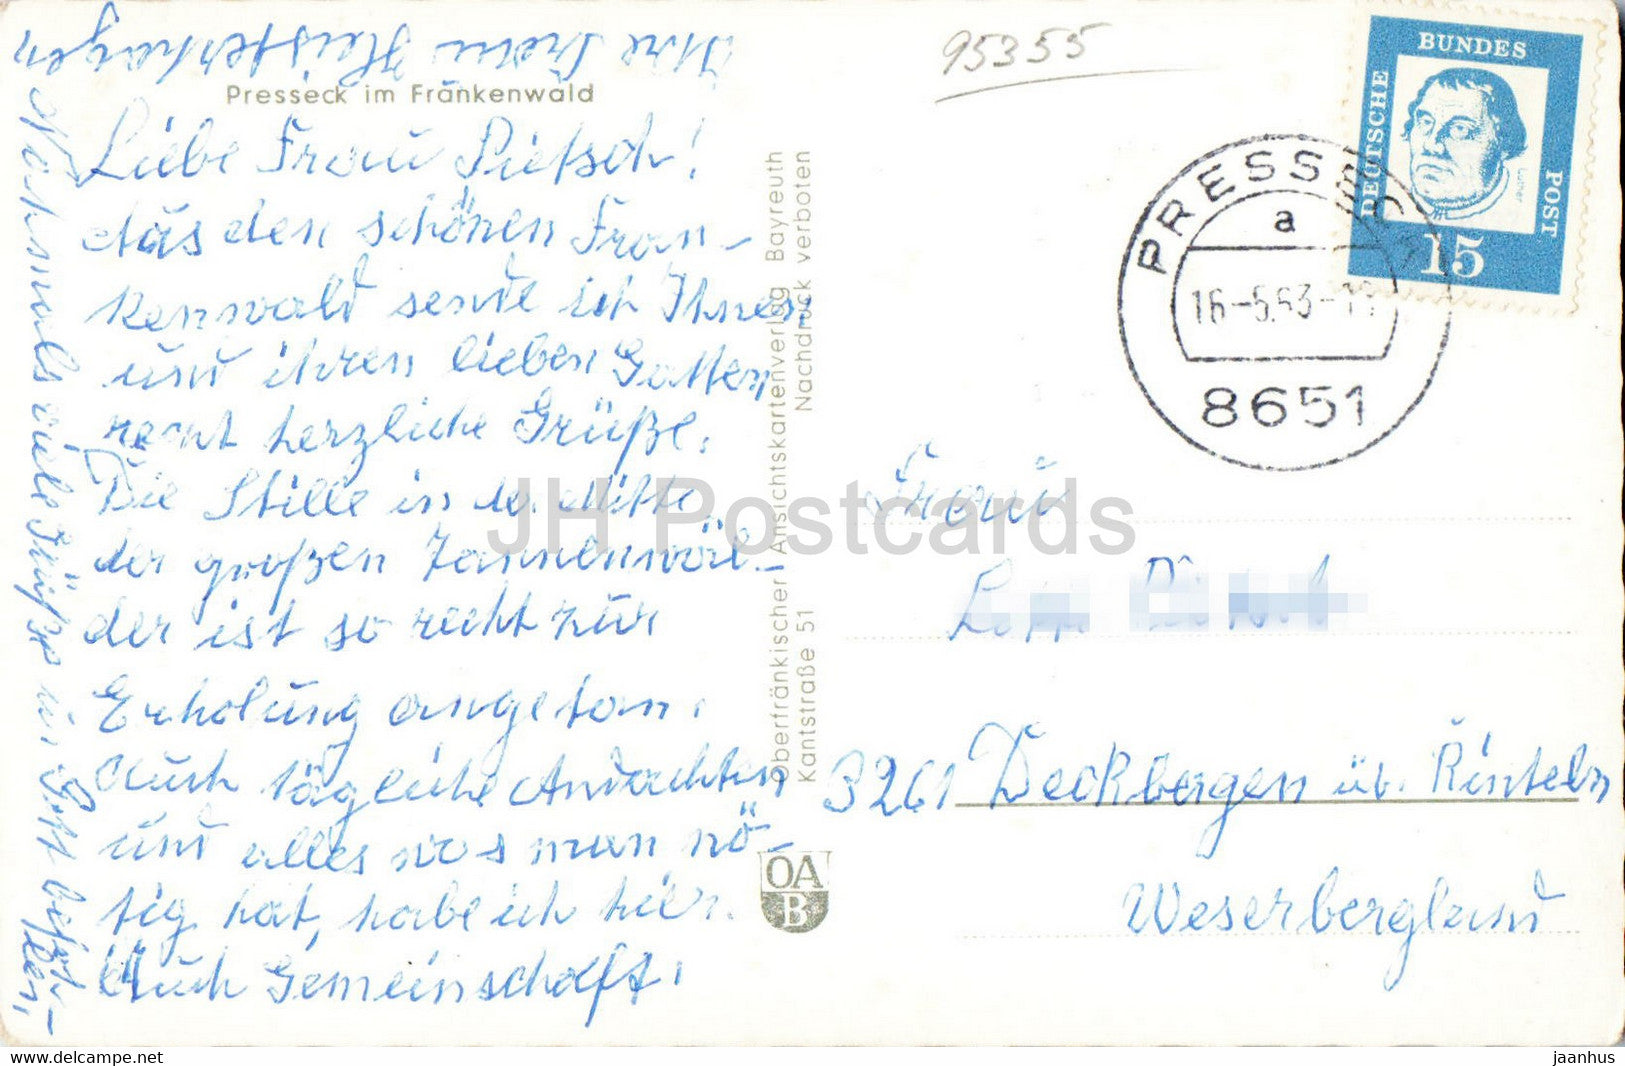 Presseck im Frankenwald
Liebe Frau Pietsch!
Aus den schönen Fran-
kenwald sende ich Ihnen
und ihren lieben Gatten
recht herzliche Grüße.
Die Stille in der Mitte
der großen Tannenwäl-
der ist so recht zur
Erholung angetan.
Auch tägliche Andachten
und alles was man nö-
tig hat, habe ich hier.
Auch Gemeinschaft.
Nochmals viele Grüße u. Gott befoh-
len,
Ihre Heisterhagen
Oberfränkischer Ansichtskartenverlag Bayreuth
Kantstraße 51 Nachdruck verboten
OA
B
95355
DEUTSCHE
BUNDES
POST
Luther
15
PRESSECK
a
16.-5.63-1
8651
Frau
3261 Deckbergen üb. Rinteln
Weserbergland
JH Postcards
www.delcampe.net
jaanhus